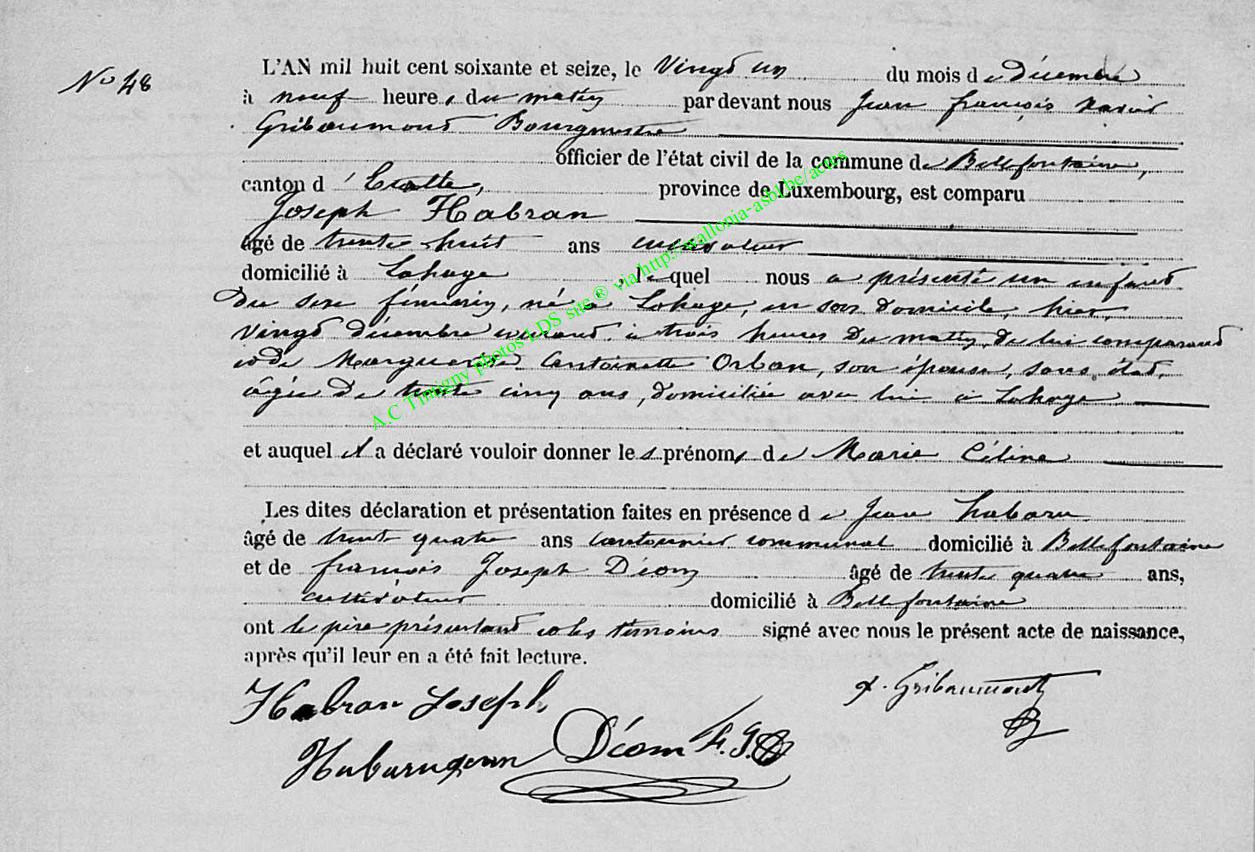 No 48
L'AN mil huit cent soixante et seize, le Vingt un du mois de Décembre
à neuf heures du matin par devant nous Jean françois Xavier
Gribaumont Bourgmestre
officier de l'état civil de la commune de Bellefontaine,
canton d'Etalle, province de Luxembourg, est comparu
Joseph Habran
âgé de trente huit ans cultivateur
domicilié à Lahage, lequel nous a présenté un enfant
du sexe féminin, né à Lahage, en son domicile, hier,
vingt décembre courant, à trois heures du matin, de lui comparant
et de Marguerite Antoinette Orban, son épouse, sans état,
âgée de trente cinq ans, domiciliée avec lui à Lahage
et auquel il a déclaré vouloir donner les prénoms de Marie Céline
Les dites déclaration et présentation faites en présence de Jean habaru
âgé de trente quatre ans cantonnier communal domicilié à Bellefontaine
et de françois Joseph Déom âgé de trente quatre ans,
cultivateur domicilié à Bellefontaine
ont le père présentant et les témoins signé avec nous le présent acte de naissance,
après qu'il leur en a été fait lecture.
Habran Joseph
X. Gribaumont
Habaru jean Déom F. J.
A.C Tintigny photos LDS site® via http://wallonia-asbl.be/actes